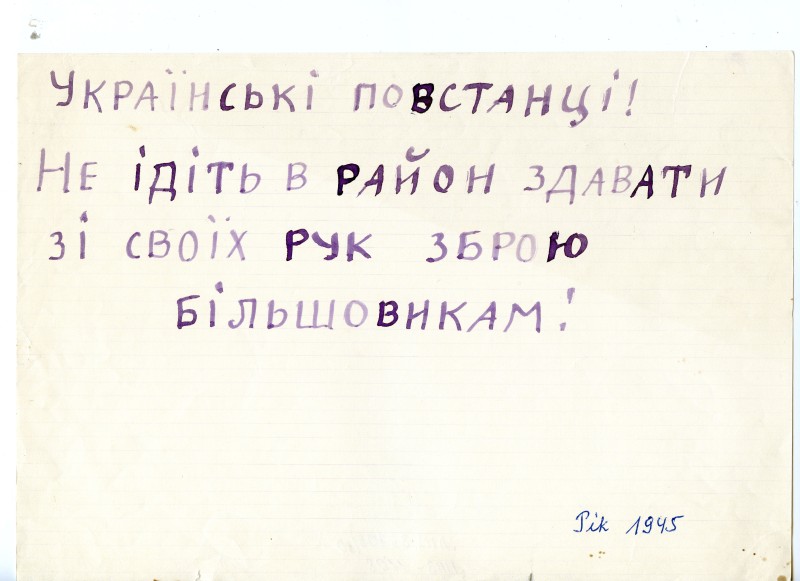 Українські повстанці!
Не ідіть в район здавати
зі своїх рук зброю
більшовикам!
Рік 1945